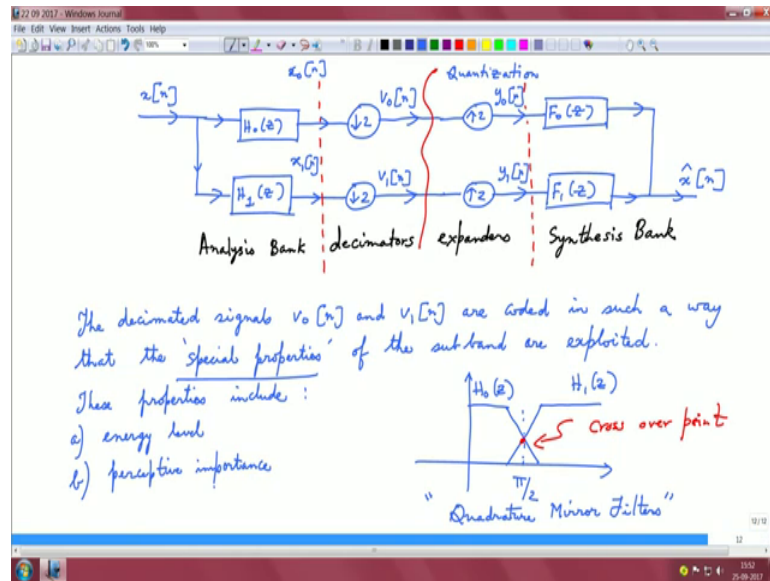 22 09 2017 - Windows Journal
File Edit View Insert Actions Tools Help
100%
x[n]
x₀[n]
v₀[n]
Quantization
y₀[n]
H₀(z)
↓2
↑2
F₀(z)
x₁[n]
v₁[n]
y₁[n]
x̂[n]
H₁(z)
↓2
↑2
F₁(z)
Analysis Bank
decimators
expanders
Synthesis Bank
The decimated signals v₀[n] and v₁[n] are coded in such a way
that the 'special properties' of the subband are exploited.
These properties include :
a) energy level
b) perceptive importance
H₀(z)
H₁(z)
cross over point
π/2
"Quadrature Mirror Filters"
12/12
12
15:52
25-09-2017